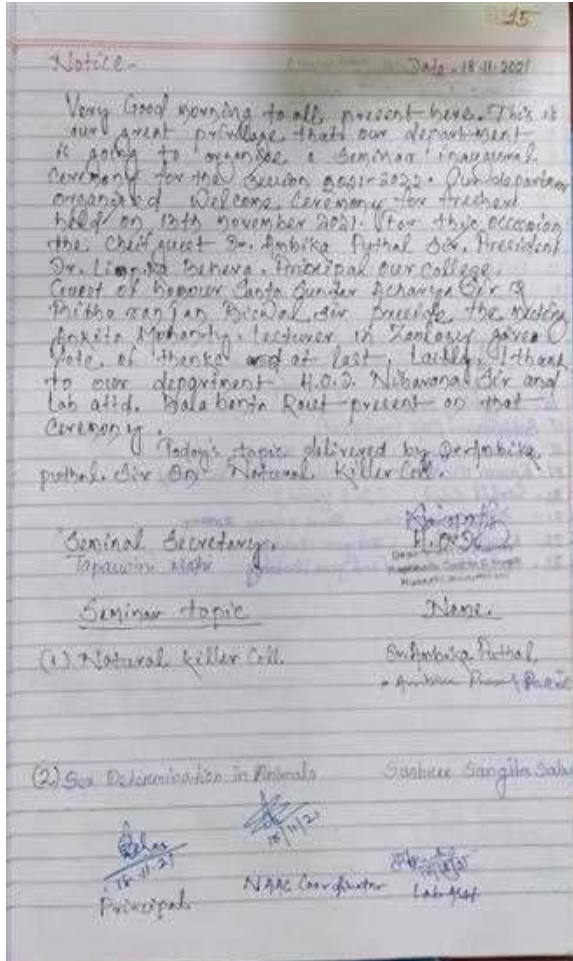 25
Notice - Date - 18.11.2021
Very Good morning to all, present here. This is
our great privilage that our department
is going to organise a seminar inaugural
ceremony for the Session 2021-2022. Our departmen
organised Welcome Ceremony for freshers
held on 18th November 2021. For this occassion
the Cheif guest Dr. Ambika Puthal Sir, President
Dr. Behera, Principal our college.
Guest of honour Santa Sundar Acharya Sir &
Bibhu ranjan Biswal sir preside the meeting
Ankita Mohanty, Lecturer in Zoology gives
Vote of thanks and at last, Lastly, I thank
to our department H.O.D. Nibarana Sir and
Lab attd. Bala banta Rout present on that
Ceremony.
Today's topic delivered by Dr Ambika
puthal Sir on Natural Killer Cell.
Seminal Secretary. H.O.D
Tapaswini
Seminar topic Name.
(1). Natural killer Cell. Ambika Puthal
(2) Sex Determination in Animals Sushree Sangita Sahu
18/11/21
18.11.21
NAAC Coordinator
Principal